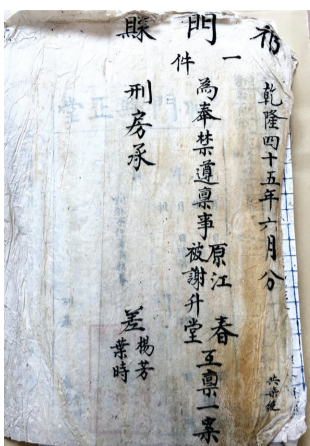 祁門縣
乾隆四十五年六月分
一件
為奉禁遵稟事原江春
被謝升堂互稟一案
刑房承
差楊芳
葉時
共柒紙